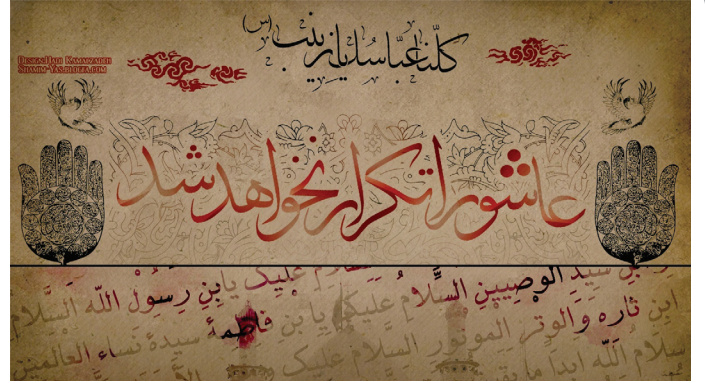 كلنا عباسك يا زينب (س)
Design:Hadi Kamanzadeh
Shamim-Yas.blogfa.com
عاشورا تکرار نخواهد شد
سيد الوصيين السلام عليك يابن رسول الله السلام
ابن ثاره والوتر الموتور السلام عليك يا بن فاطمة سيدة نساء العالمين
سلام الله ابدا ما